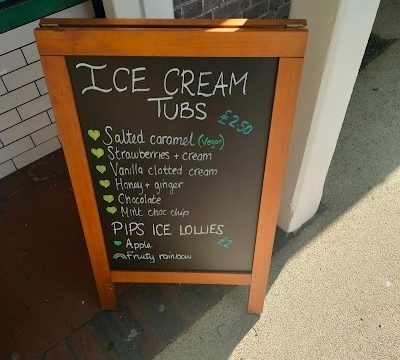 ICE CREAM
TUBS £2.50
Salted caramel (vegan)
Strawberries + cream
Vanilla clotted cream
Honey + ginger
Chocolate
Mint choc chip
PIPS ICE LOLLIES
Apple £2
Fruity rainbow